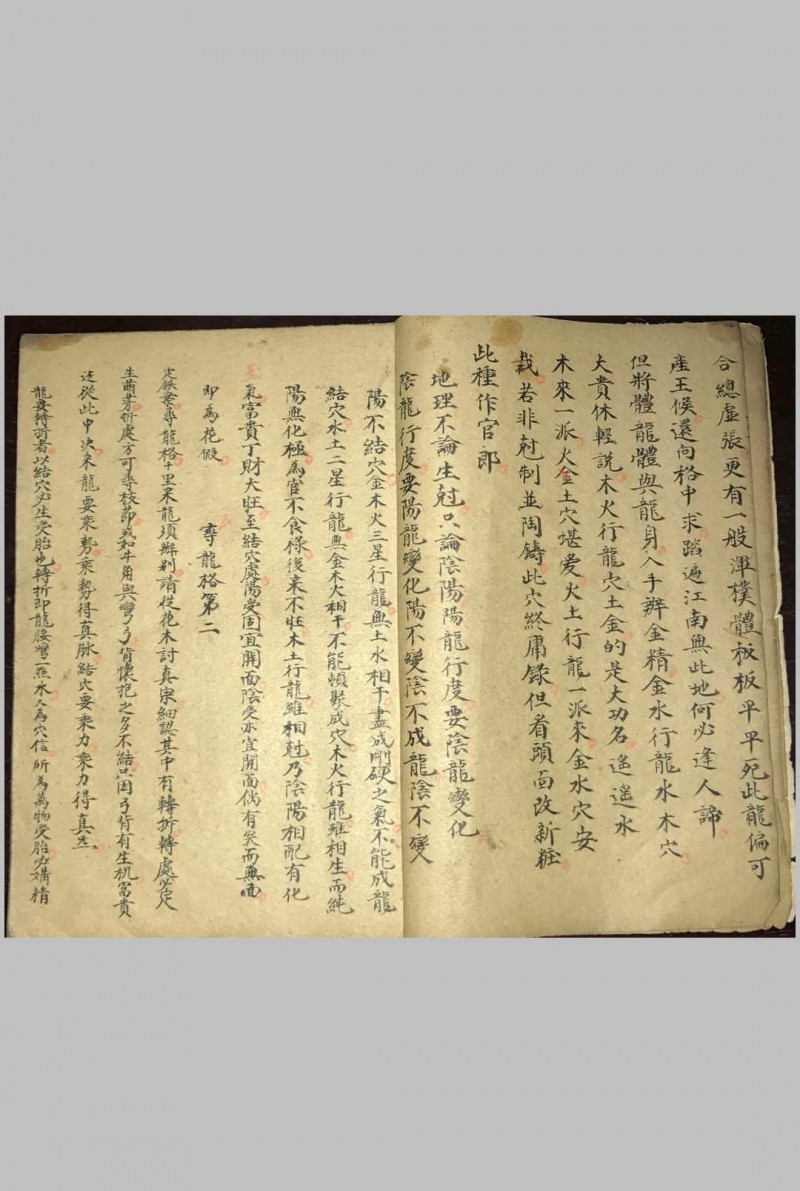 合總虛張更有一般渾樸體板板平平死此龍偏可
產王侯還向格中求踏遍江南無此地何必逢人諦
但將體龍體與龍身入手辨金精金水行龍水木穴
大貴休輕說木火行龍穴土金的是大功名遙遙水
木來一派火金土穴堪愛火土行龍一派來金水穴安
裁若非尅制並陶鑄此穴終庸錄但看頭面改新粧
此種作官郎
地理不論生尅只論陰陽陽龍行度要陰龍變化
陰龍行度要陽龍變化陽不變陰不成龍陰不變
陽不結穴金木火三星行龍無土水相干盡成剛硬之氣不能成龍
結穴水土二星行龍無金木火相干不能頓聚成穴木火行龍雖相生而純
陽無化極為官不食祿後來不旺木土行龍雖相尅乃陰陽相配有化
氣富貴丁財大旺至結穴處陽受固宜開面陰受亦宜開面偶有矣而無面
即為花假
尋龍格第二
定鉄案尋龍格十里來龍須辨别請從花木討真宗細認其中有轉折轉處必定
生萌芽折處方可尋枝節或如牛角與彎弓弓背懷抱之多不結只因弓背有生机富貴
還從此中決來龍要乘勢乘勢得真脉結穴要乘力乘力得真
龍要轉折者以結穴必生受胎也轉折即龍腰彎一點水人為穴信所為萬物受胎必媾精